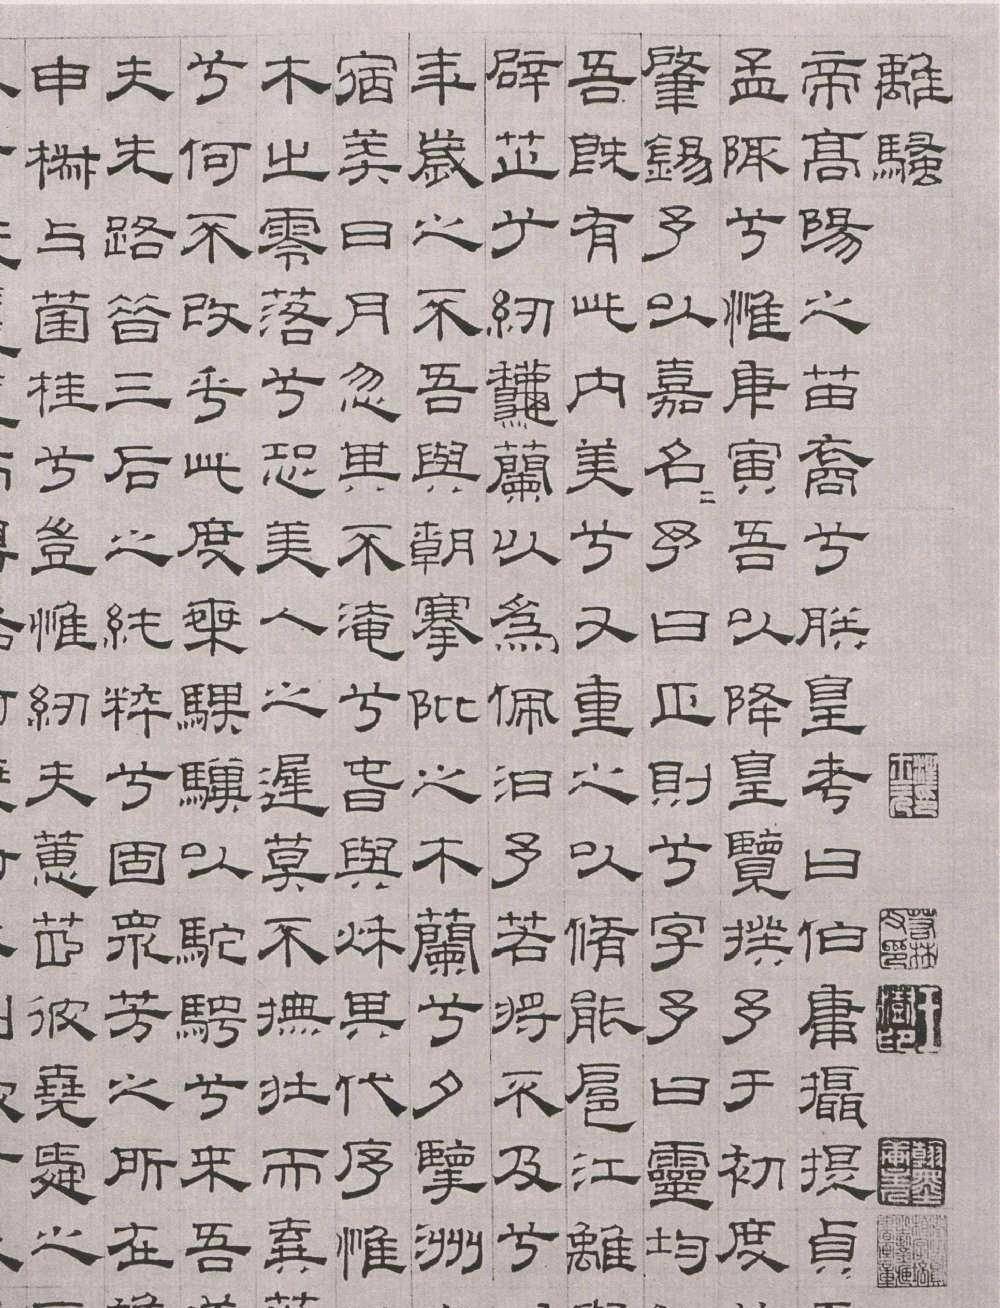 離騷
帝高陽之苗裔兮朕皇考曰伯庸攝提貞
孟陬兮惟庚寅吾以降皇覽揆予于初度
肇錫予以嘉名〻予曰正則兮字予曰靈均
吾既有此内美兮又重之以脩能扈江離
辟芷兮紉龝蘭以為佩汩予若將不及兮
年歲之不吾與朝搴阰之木蘭兮夕擥洲
宿莽日月忽其不淹兮春與秋其代序惟
木之零落兮恐美人之遲莫不撫壯而棄
兮何不改乎此度椉騏驥以駝騁兮来吾
夫先路昔三后之純粹兮固衆芳之所在
申椒与菌桂兮豈惟紉夫蕙茝彼堯舜之